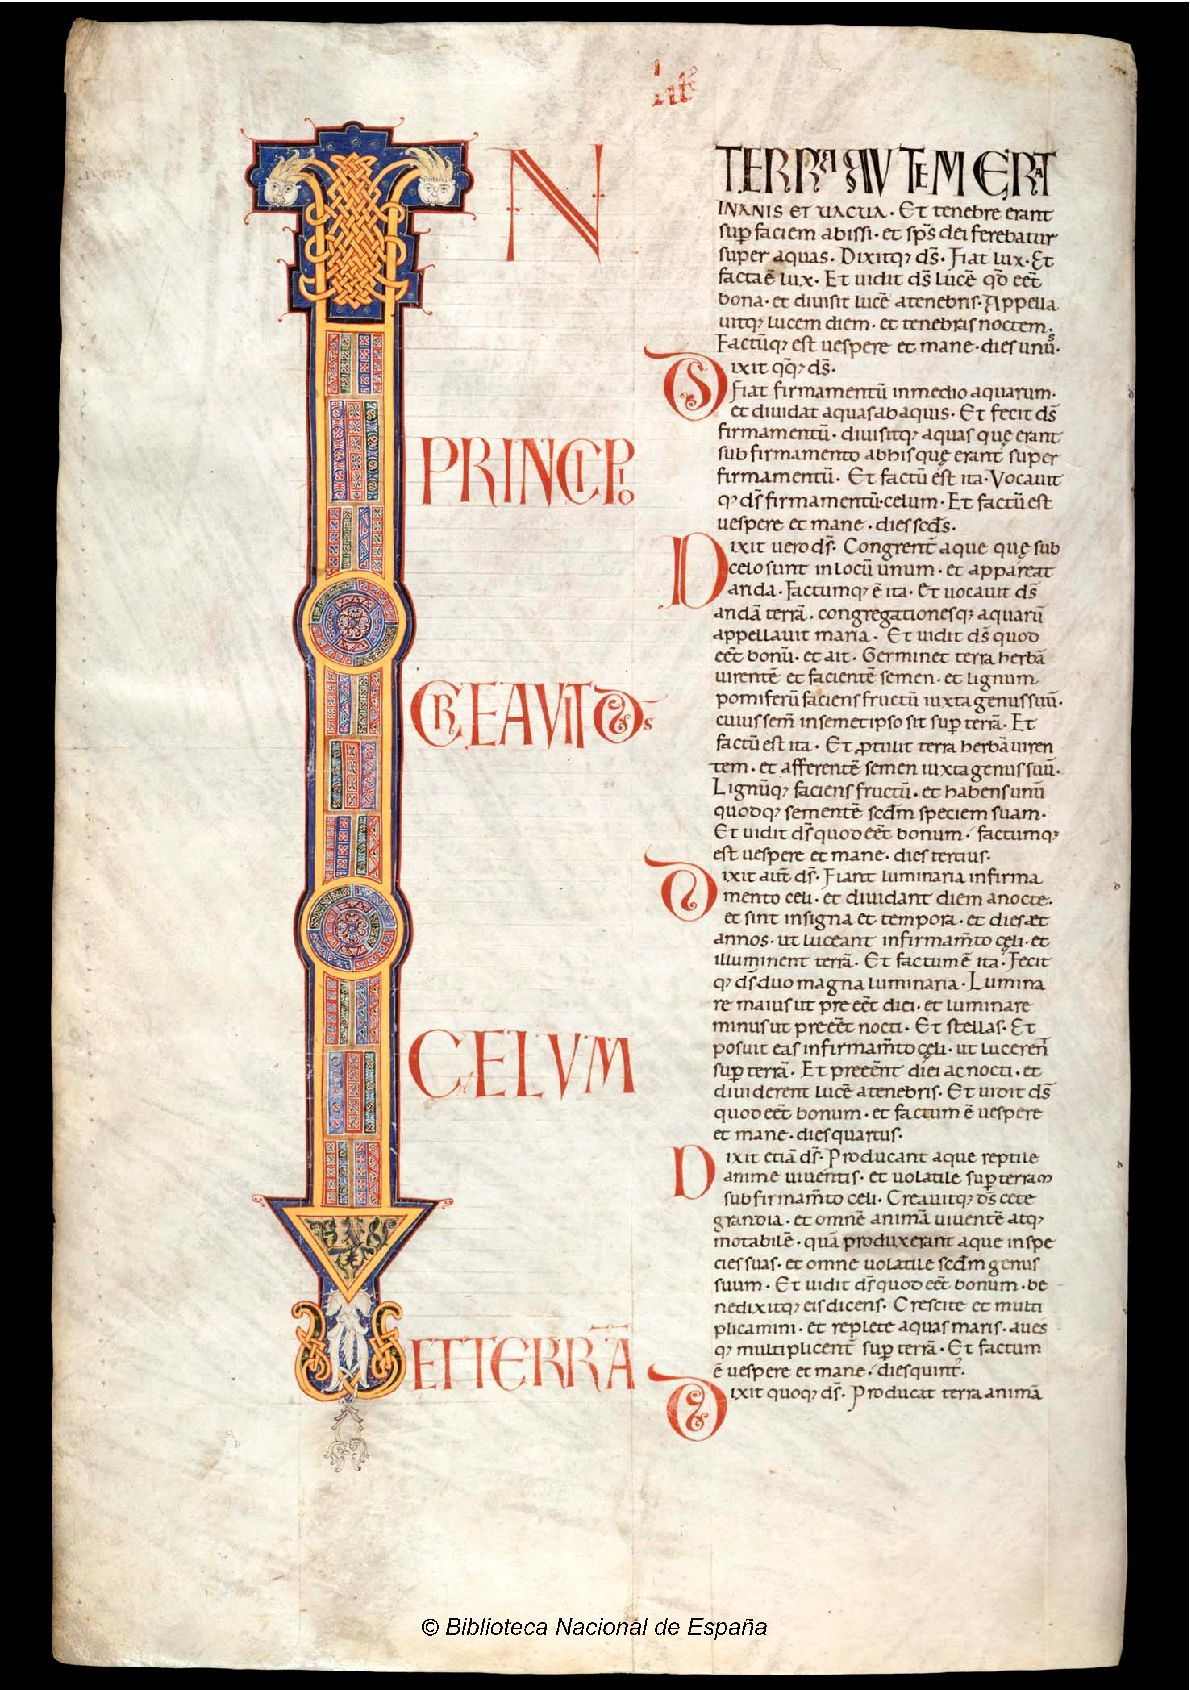 IN
PRINCIPIO
CREAVIT DS
CELVM
ET TERRĀ
TERRA AVTEM ERAT
INANIS ET UACUA · Et tenebre erant
sup faciem abissi · et sps̄ dei ferebatur
super aquas · Dixitqꝫ ds̄ · Fiat lux · Et
facta ē lux · Et uidit ds̄ lucē qd̄ eēt
bona · et diuisit lucē a tenebris · Appella
uitqꝫ lucem diem · et tenebras noctem ·
Factūqꝫ est uespere et mane · dies unus ·
Dixit qqꝫ ds̄ ·
Fiat firmamentū in medio aquarum ·
et diuidat aquas ab aquis · Et fecit ds̄
firmamentū · diuisitqꝫ aquas quę erant
sub firmamento ab his quę erant super
firmamentū · Et factū est ita · Vocauit
qꝫ ds̄ firmamentū celum · Et factū est
uespere et mane · dies scds̄ ·
Dixit uero ds̄ · Congrent̄ aque quę sub
celo sunt in locū unum · et appareat
arida · Factumqꝫ ē ita · Et uocauit ds̄
aridā terrā · congregationesqꝫ aquarū
appellauit maria · Et uidit ds̄ quod
eēt bonū · et ait · Germinet terra herbā
uirentē et facientē semen · et lignum
pomiferū faciens fructū iuxta genus suū ·
cuius sem̄ in semetipso sit sup terrā · Et
factū est ita · Et ꝓtulit terra herbā uiren
tem · et afferentē semen iuxta genus suū ·
Lignūqꝫ faciens fructū · et habens unū
quodqꝫ sementē scdm̄ speciem suam ·
Et uidit ds̄ quod eēt bonum · factumqꝫ
est uespere et mane · dies tertius ·
Dixit aūt ds̄ · Fiant luminaria in firma
mento celi · et diuidant diem a nocte ·
et sint in signa et tempora · et dies et
annos · ut luceant in firmam̄to cęli · et
illuminent terrā · Et factum ē ita · Fecit
qꝫ ds̄ duo magna luminaria · Lumina
re maius ut pre eēt diei · et luminare
minus ut pre eēt nocti · Et stellas · Et
posuit eas in firmam̄to cęli · ut lucerent
sup terrā · Et preeēnt diei ac nocti · et
diuiderent lucē a tenebris · Et uidit ds̄
quod eēt bonum · et factum ē uespere
et mane · dies quartus ·
Dixit etiā ds̄ · Producant aque reptile
anime uiuentis · et uolatile sup terram
sub firmam̄to celi · Creauitqꝫ ds̄ cete
grandia · et omnē animā uiuentē atqꝫ
motabilē · quā produxerant aque in spe
cies suas · et omne uolatile scdm̄ genus
suum · Et uidit ds̄ quod eēt bonum · be
nedixitqꝫ eis dicens · Crescite et multi
plicamini · et replete aquas maris · aues
qꝫ multiplicent̄ sup terrā · Et factum
ē uespere et mane · dies quint᾽ ·
Dixit quoqꝫ ds̄ · Producat terra animā
© Biblioteca Nacional de España